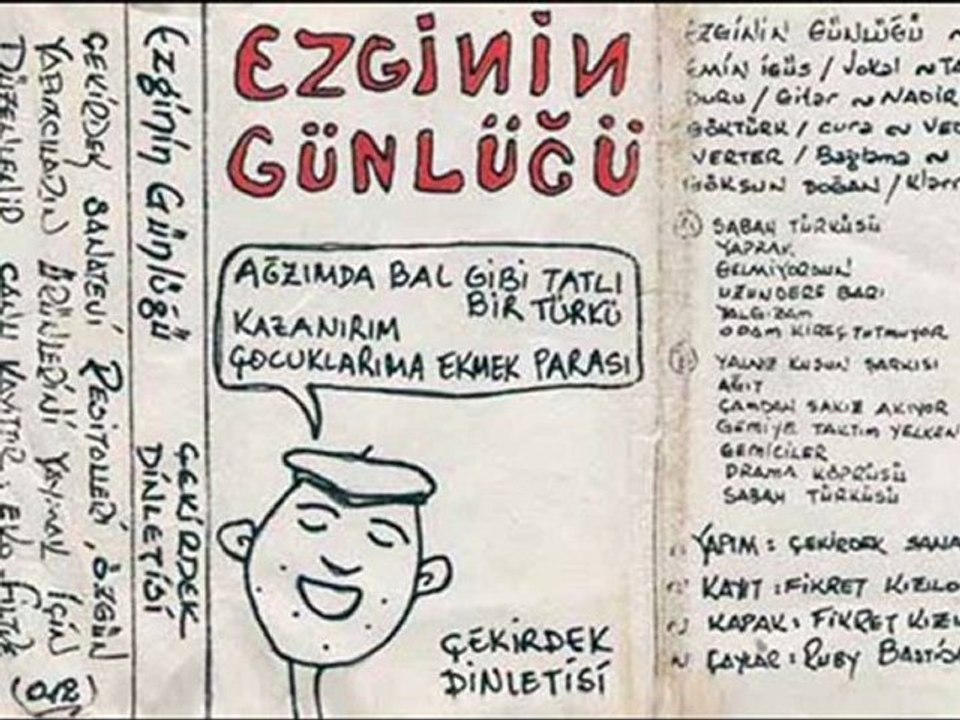 ÇEKİRDEK SANATEVİ RESİTALLERİ, ÖZGÜN
YAPIMCILARIN ÜRÜNLERİNİ YAYMAK İÇİN
DÜZENLENİP CANLI KAYITTIR.
Ezginin Günlüğü
ÇEKİRDEK
DİNLETİSİ
EZGİNİN
GÜNLÜĞÜ
AĞZIMDA BAL GİBİ TATLI
BİR TÜRKÜ
KAZANIRIM
ÇOCUKLARIMA EKMEK PARASI
ÇEKİRDEK
DİNLETİSİ
EZGİNİN GÜNLÜĞÜ ~
EMİN İGÜS / Vokal ~ TA
DURU / Gitar ~ NADİR
GÖKTÜRK / cura ~ VED
VERTER / Bağlama ~
GÖKSUN DOĞAN / Klar
SABAH TÜRKÜSÜ
YAPRAK
GELMİYORSUN
UZUNDERE BARI
YALGIZAM
ODAM KİREÇ TUTMUYOR
YALNIZ KUŞUN ŞARKISI
AĞIT
ÇAMDAN SAKIZ AKIYOR
GEMİYE TAKTIM YELKEN
GEMİCİLER
DRAMA KÖPRÜSÜ
SABAH TÜRKÜSÜ
YAPIM : ÇEKİRDEK SANA
KAYIT : FİKRET KIZILO
KAPAK : FİKRET KIZI
ÇAYLAR : RUBY